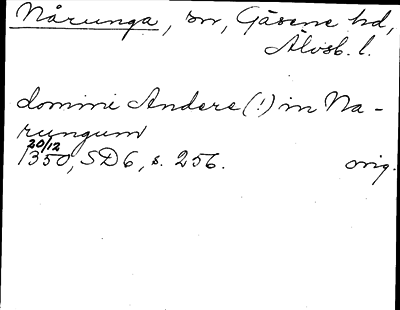 Nårunga, sn, Gäsene hd,
Älvsb. l.
domini Andere (!) in Na-
rungum
20/12
1350, SD 6, s. 256. orig.